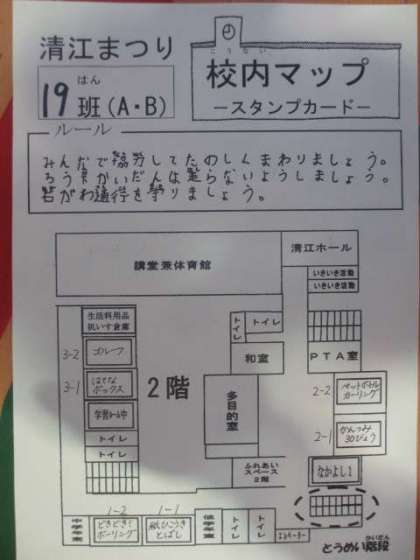 清江まつり
はん
19班(A・B)
こうない
校内マップ
ースタンプカードー
ルール
みんなで協力してたのしくまわりましょう。
ろうかかいだんは走らないようしましょう。
右がわ通行を守りましょう。
講堂兼体育館
清江ホール
いきいき活動
いきいき活動
生活科用品
机いす倉庫
トイレ
トイレ
和室
PTA室
3-2
ゴルフ
3-1
はてな
ボックス
学習ルーム中
トイレ
トイレ
2階
多目的室
2-2
ペットボトル
カーリング
2-1
かんつみ
30びょう
ふれあい
スペース
2階
なかよし1
1-2
1-1
中学年室
どきどき!
ボーリング
紙ひこうき
とばし
低学年室
トイレ
トイレ
エレベーター
かいだん
とうめい階段